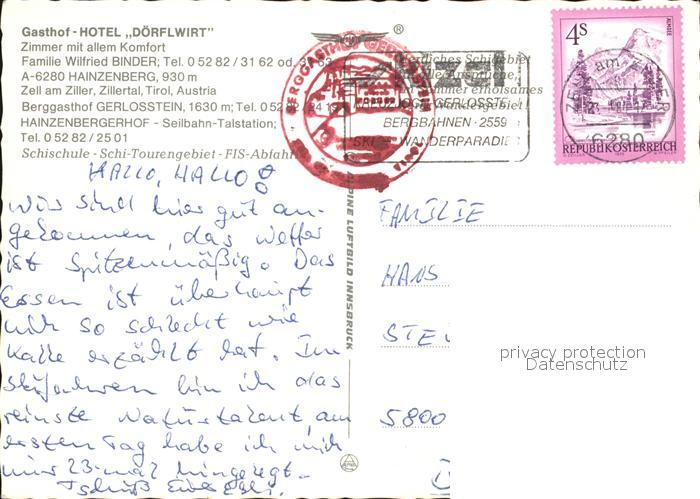 Gasthof - HOTEL „DÖRFLWIRT"
Zimmer mit allem Komfort
Familie Wilfried BINDER; Tel. 0 52 82 / 31 62 od. 31 63
A-6280 HAINZENBERG, 930 m
Zell am Ziller, Zillertal, Tirol, Austria
Berggasthof GERLOSSTEIN, 1630 m; Tel. 0 52 82 / 24
HAINZENBERGERHOF - Seilbahn-Talstation;
Tel. 0 52 82 / 25 01
Schischule - Schi-Tourengebiet - FIS-Abfahrt
BERGGASTHOF GERLOSSTEIN
GERLOSSTEIN
BERGBAHNEN · 2559
SKI - WANDERPARADIES
4S
ALMSEE
6280
REPUBLIK ÖSTERREICH
HALLO, HALLO!
Wir sind hier gut an-
gekommen, das Wetter
ist Spitzenmäßig. Das
Essen ist überhaupt
nich so schlecht wie
Kalle erzählt hat. Im
skifahren bin ich das
reinste Naturtalent, am
ersten Tag habe ich mich
nur 23-mal hingelegt.
Tschüß Eure
ALPINE LUFTBILD INNSBRUCK
FAMILIE
HANS
STE
5800
privacy protection
Datenschutz